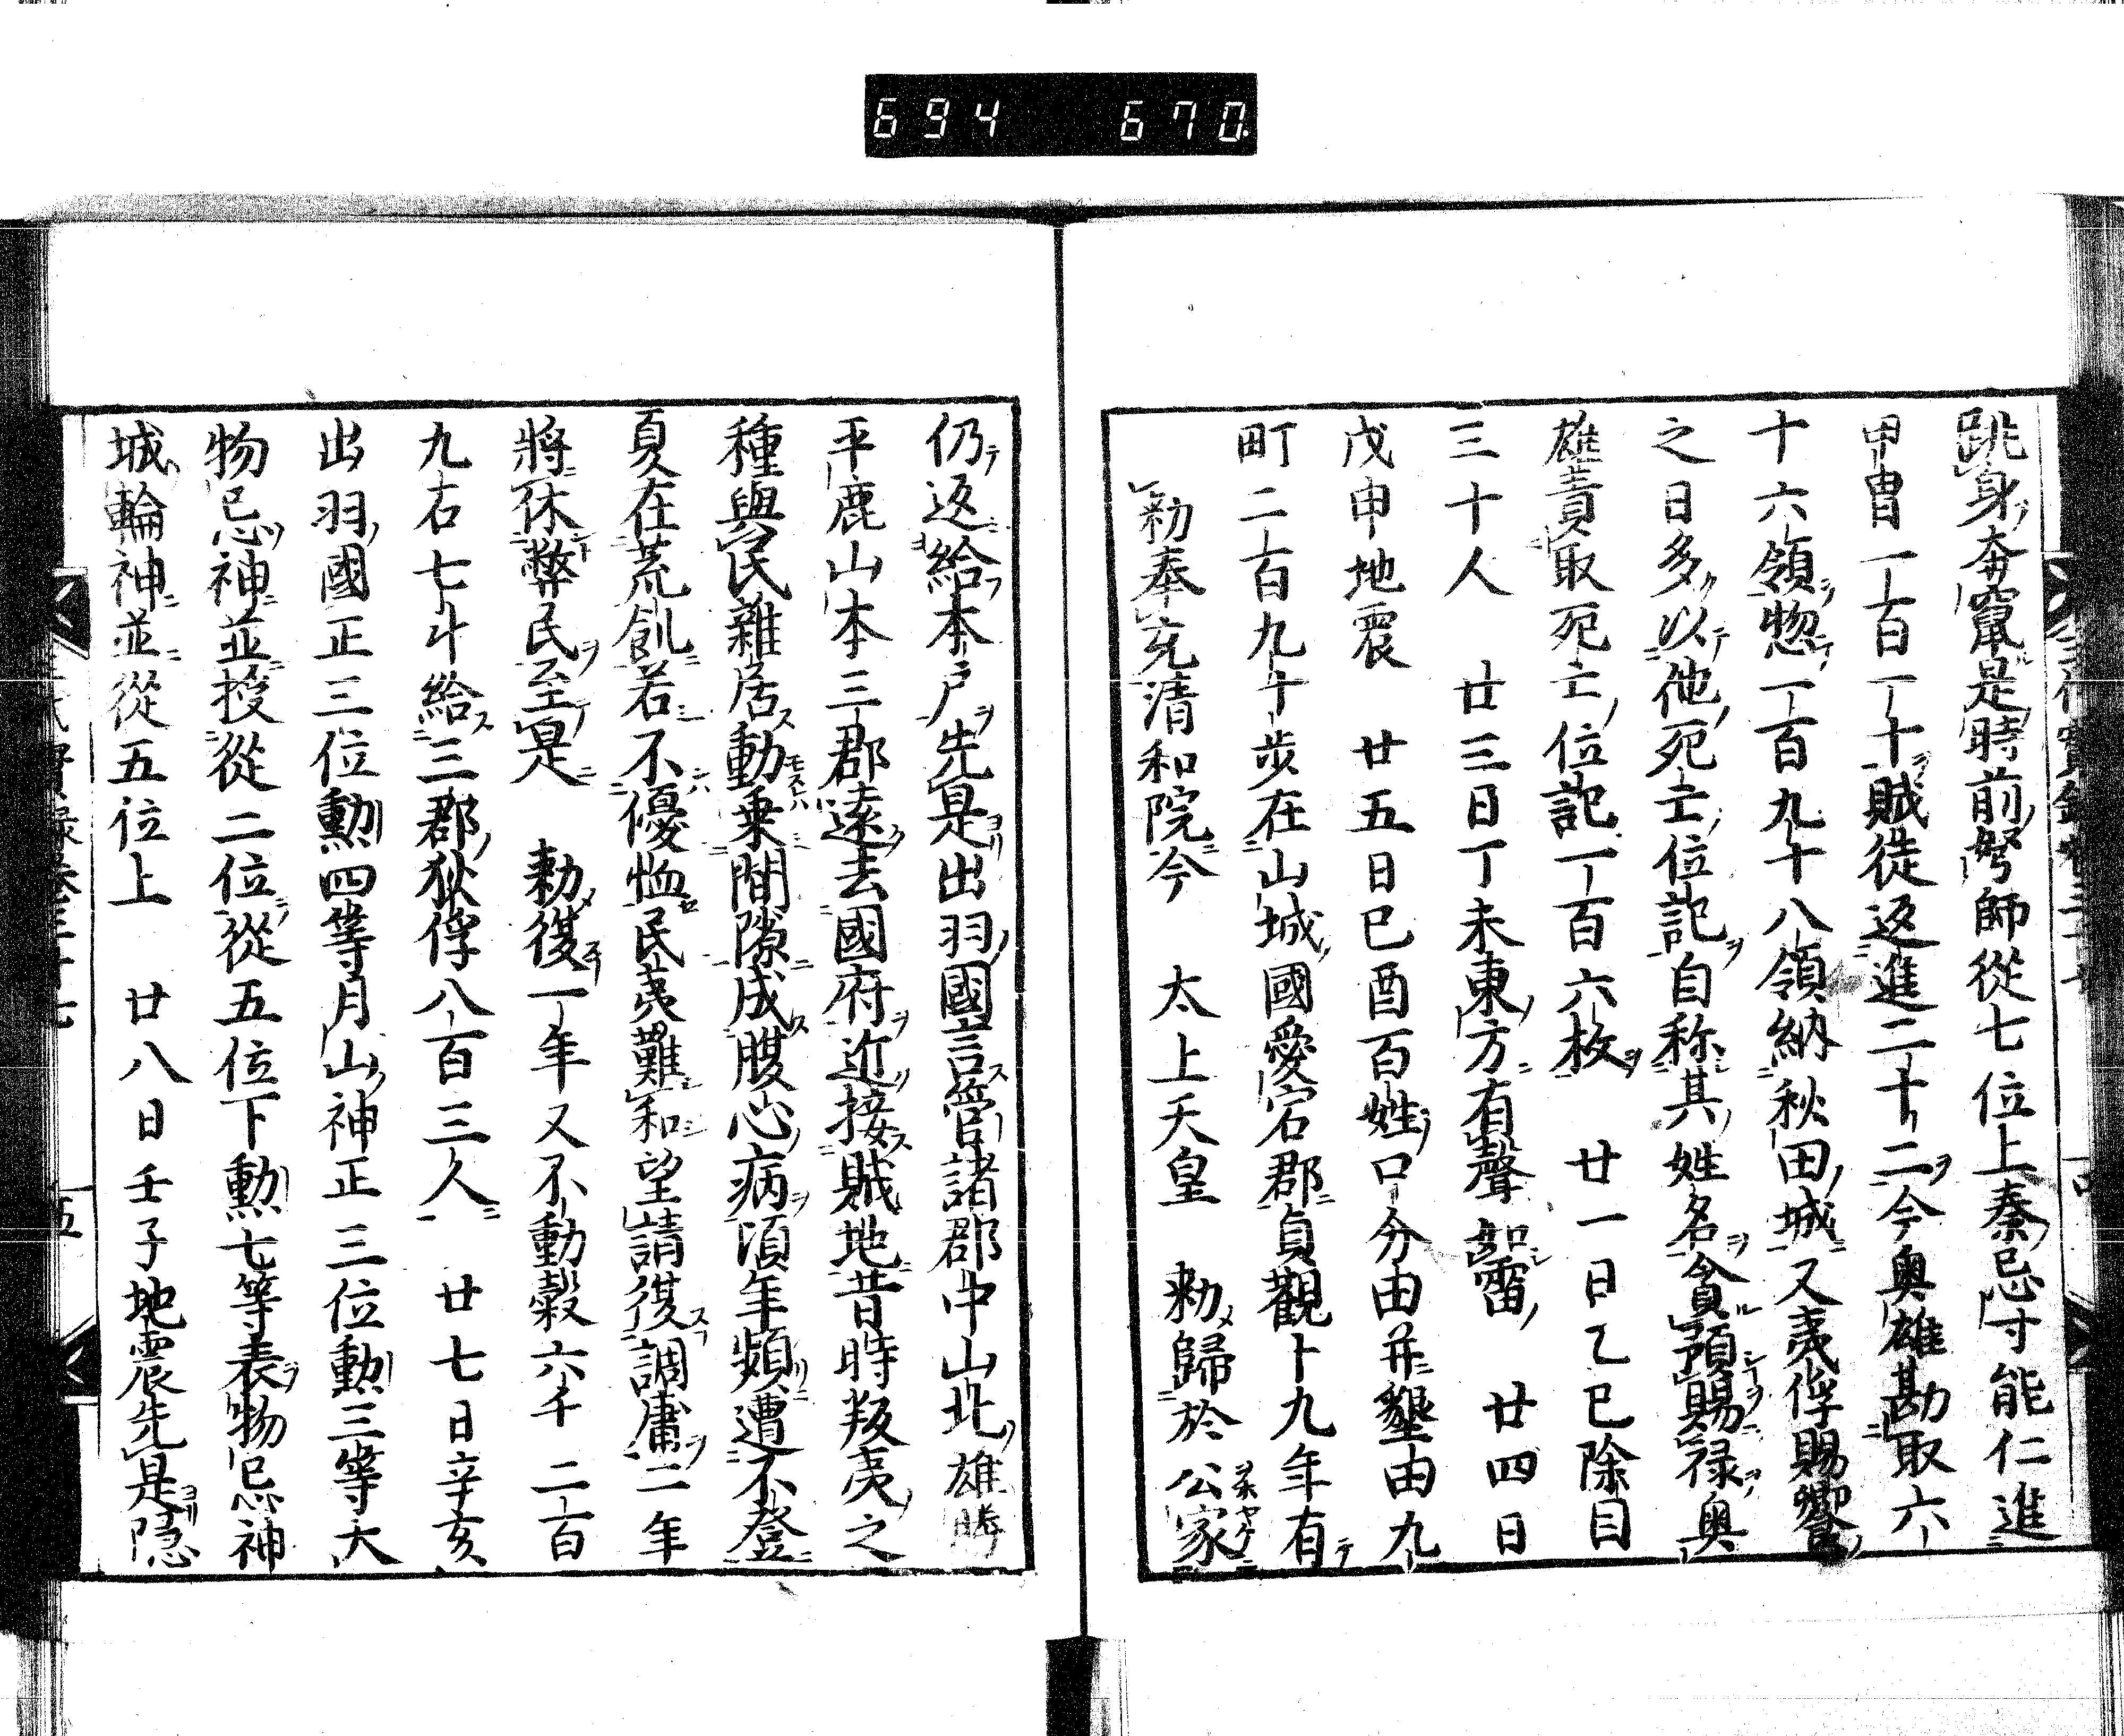 694 670
跳身奔竄是時前弩師從七位上秦忌寸能仁進
甲冑一百一十賊徒返進二十二今奥雄勘取六
十六領惣一百九十八領納秋田城又夷俘賜饗
之日多以他死亡位記自称其姓名貪預賜禄奥
雄責取死亡位記一百六枚　廿一日乙巳除目
三十人　廿三日丁未東方有聲如雷　廿四日
戊申地震　廿五日己酉百姓口分田并墾田九
町二百九十歩在山城國愛宕郡貞觀十九年有
勅奉充清和院今　太上天皇　勅歸於公家
仍返給本戸先是出羽國言管諸郡中山北雄勝
平鹿山本三郡遠去國府近接賊地昔時叛夷之
種與民雜居動乗間隙成腹心病頃年頻遭不登
夏在荒飢若不優恤民夷難和望請復調庸二年
將休弊民至是　勅復一年又不動穀六千二百
九石七斗給三郡狄俘八百三人　廿七日辛亥
出羽國正三位勳四等月山神正三位勳三等大
物忌神並授從二位從五位下勳七等袁物忌神
城輪神並從五位上　廿八日壬子地震先是隠